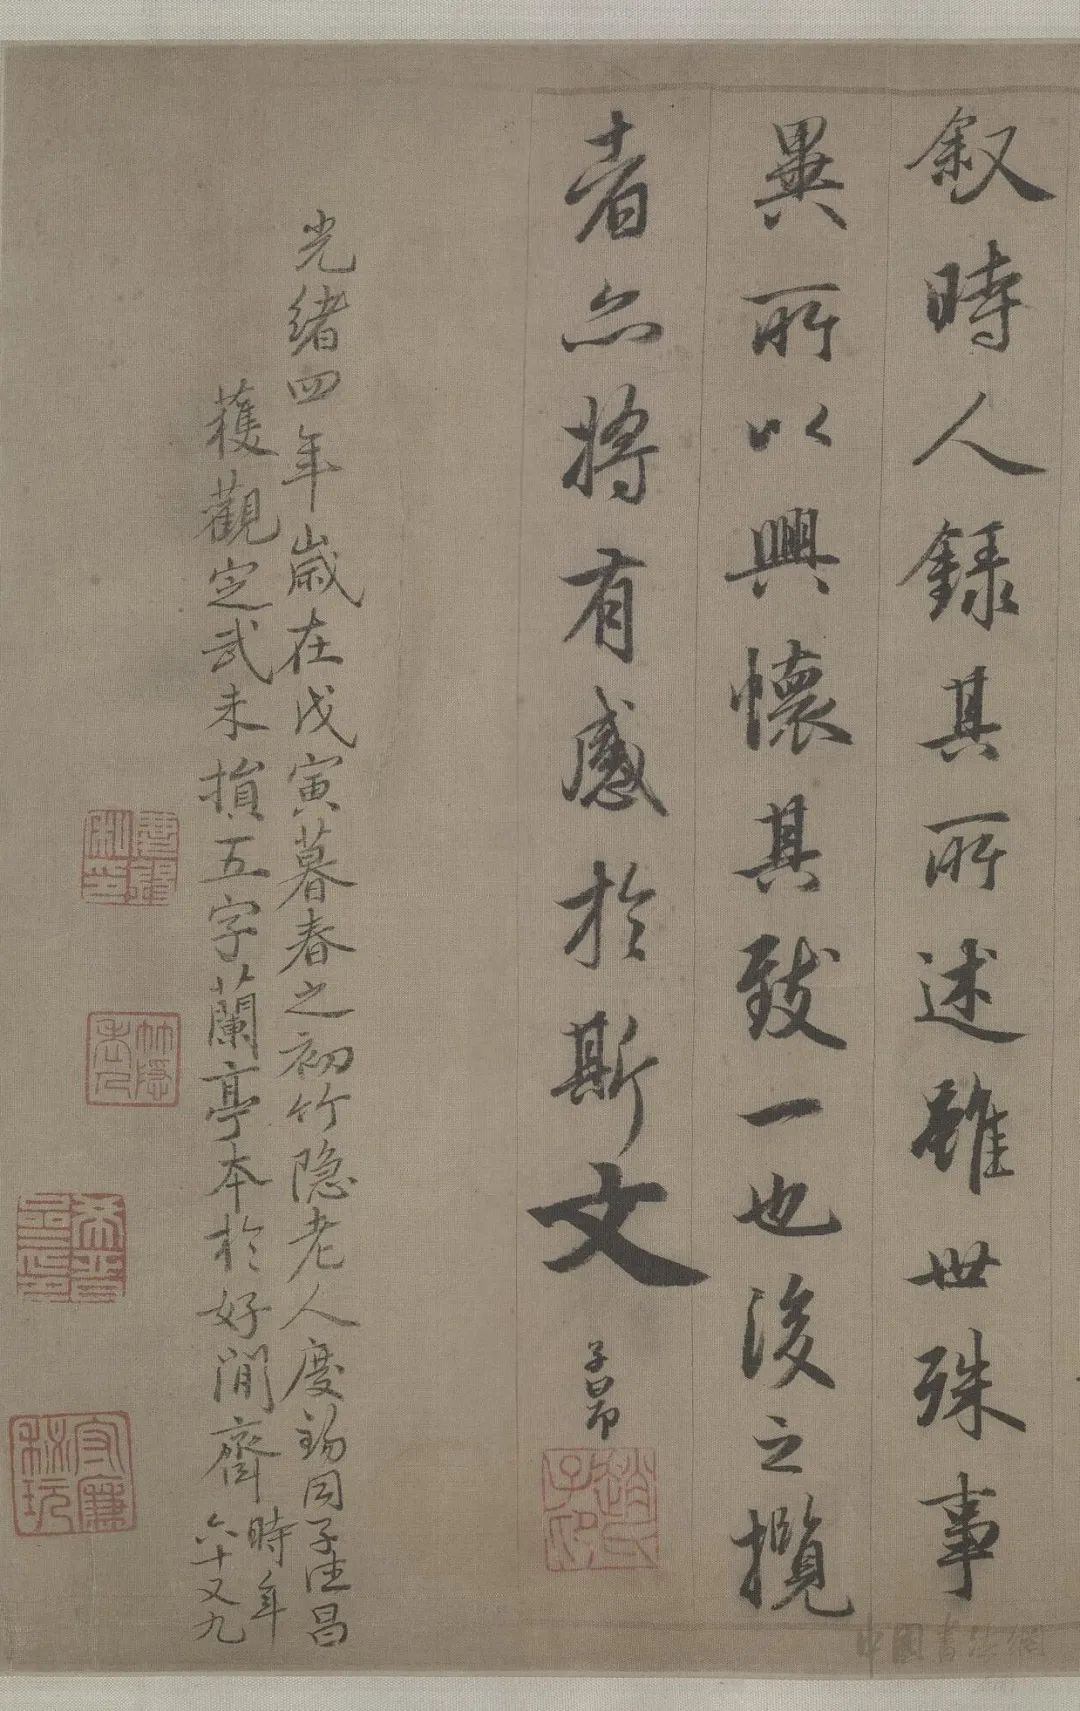 叙時人録其所述雖世殊事
異所以興懷其致一也後之攬
者亦将有感於斯文
子昂
趙氏子昂
光緒四年歲在戊寅暮春之初竹隐老人度錫同子德昌
獲觀定武未損五字蘭亭本於好閒齋時年
六十又九
竹隱
中國書法網